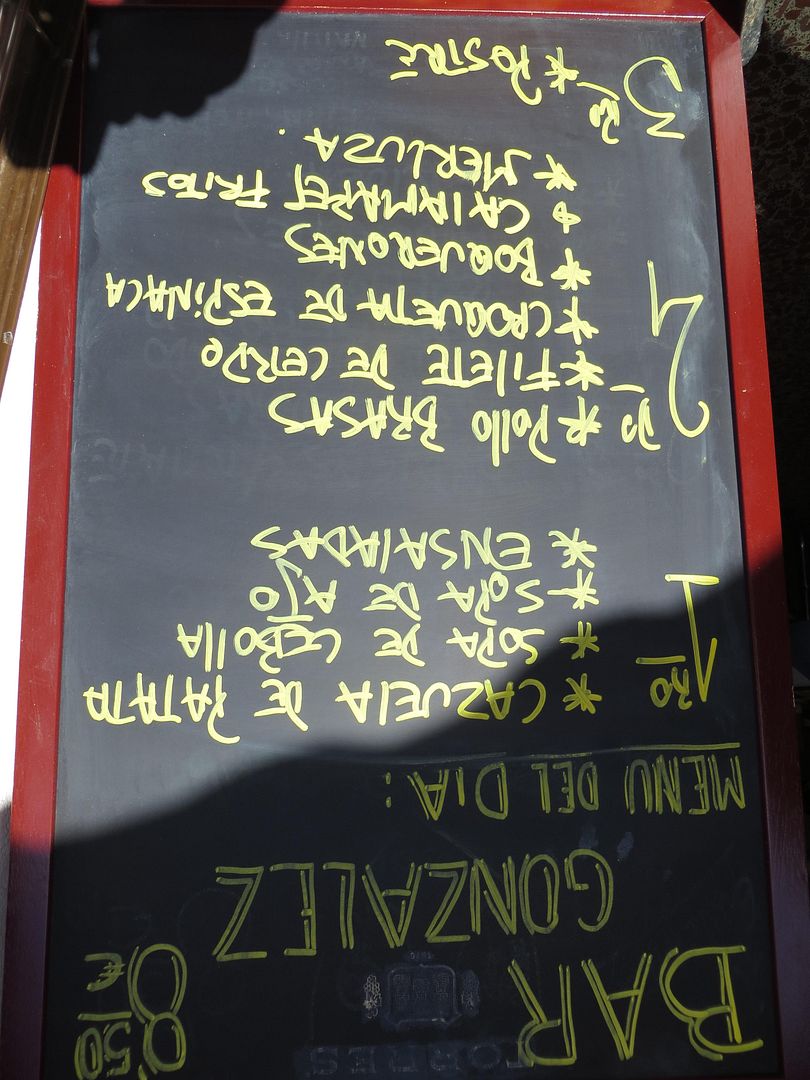 TORRES
BAR 8,50 €
GONZALEZ
MENU DEL DIA:
1RO * CAZUELA DE PATATA
* SOPA DE CEBOLLA
* SOPA DE AJO
* ENSALADAS
2DO * POLLO BRASAS
* FILETE DE CERDO
* CROQUETA DE ESPINACA
* BOQUERONES
* CALAMARET FRITOS
* MERLUZA.
3RO * POSTRE